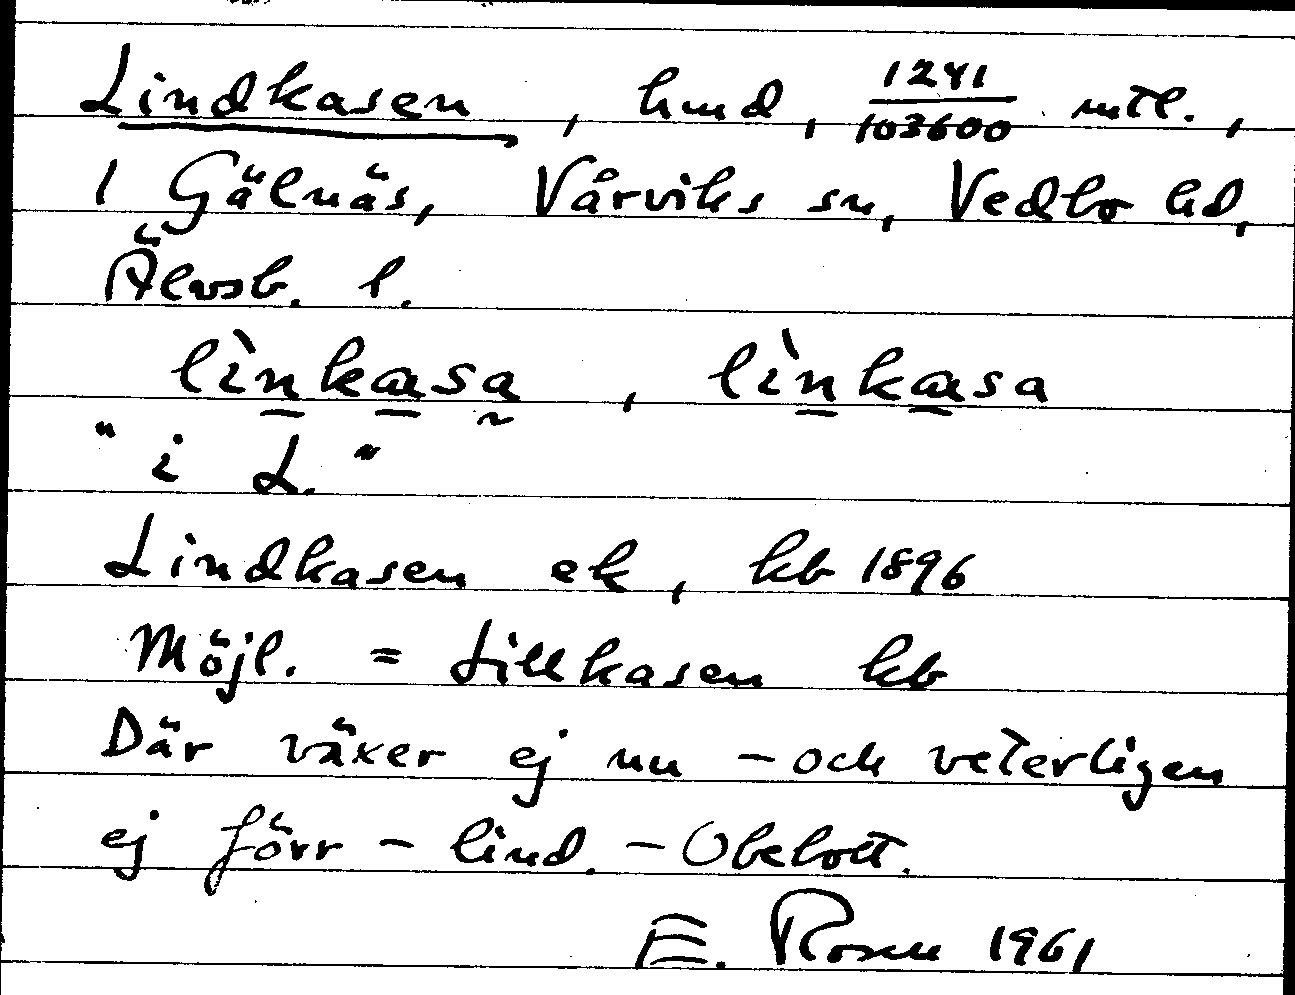 Lindkasen, hmd, 1241/103600 mtl.,
1 Gälnäs, Vårviks sn, Vedbo hd,
Älvsb. l.
lìnkasa, lìnkasa
"i L."
Lindkasen ek, kb 1896
Möjl. = Lillkasen kb
Där växer ej nu - och veterligen
ej förr - lind. - Obebott.
E. Rosen 1961